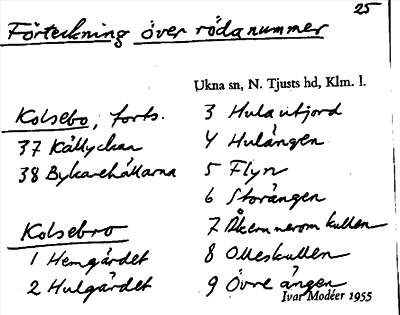 25
Förteckning över röda nummer
Ukna sn, N. Tjusts hd, Klm. l.
Kolsebo, forts.
37 Källyckan
38 Bykarehällarna
Kolsebro
1 Hemgärdet
2 Hulgärdet
3 Hulautjord
4 Hulängen
5 Flyn
6 Storängen
7 Åkern nerom kullen
8 Olleskullen
9 Övre ängen
Ivar Modéer 1955